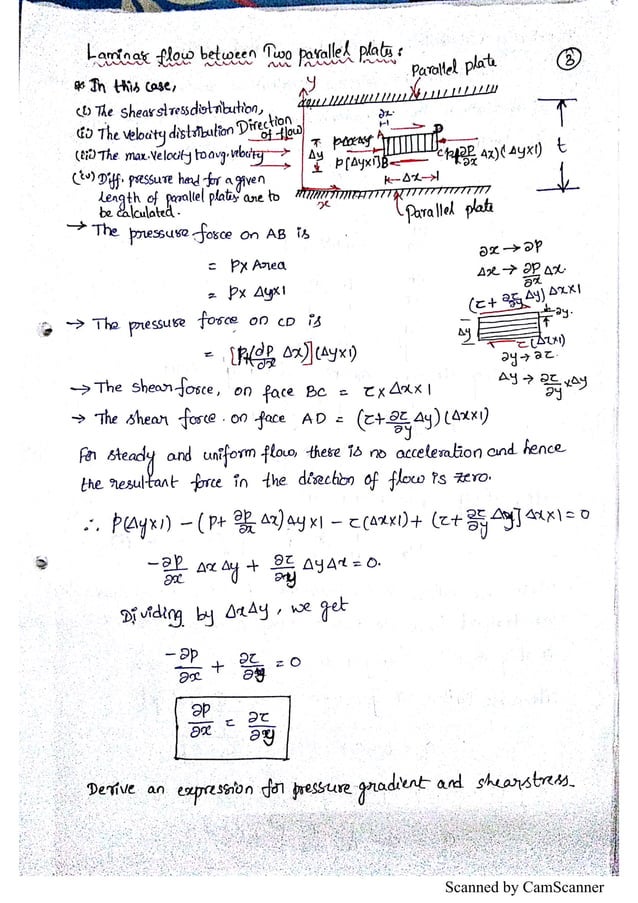 Laminar flow between Two parallel plates:
③
* In this case,
(i) The shear stress distribution,
(ii) The velocity distribution
(iii) The max. velocity to avg. velocity
(iv) Diff. pressure head for a given
length of parallel plates are to
be calculated.
y
Parallel plate
Direction
of flow
∂x
Δy
A
D
P(Δy×1)B
C
∂p/∂x Δx)(Δy×1)
t
Δx
x
Parallel plate
→ The pressure force on AB is
= P× Area
= P× Δy×1
∂x → ∂p
Δx → ∂p/∂x Δx.
(τ+ ∂τ/∂y Δy) Δx×1
Δy
∂y.
τ(Δx×1)
∂y → ∂τ.
Δy → ∂τ/∂y × Δy
→ The pressure force on CD is
= [P+(dp/∂x Δx)](Δy×1)
→ The shear force, on face BC = τ × Δx × 1
→ The shear force on face AD = (τ+ ∂τ/∂y Δy)(Δx×1)
For steady and uniform flow, there is no acceleration and hence
the resultant force in the direction of flow is zero.
∴ P(Δy×1) − (P+ ∂p/∂x Δx) Δy×1 − τ(Δx×1) + (τ+ ∂τ/∂y Δy] Δx×1 = 0
−∂p/∂x Δx Δy + ∂τ/∂y Δy Δx = 0.
Dividing by ΔxΔy, we get
−∂p/∂x + ∂τ/∂y = 0
∂p/∂x = ∂τ/∂y
Derive an expression for pressure gradient and shear stress.
Scanned by CamScanner